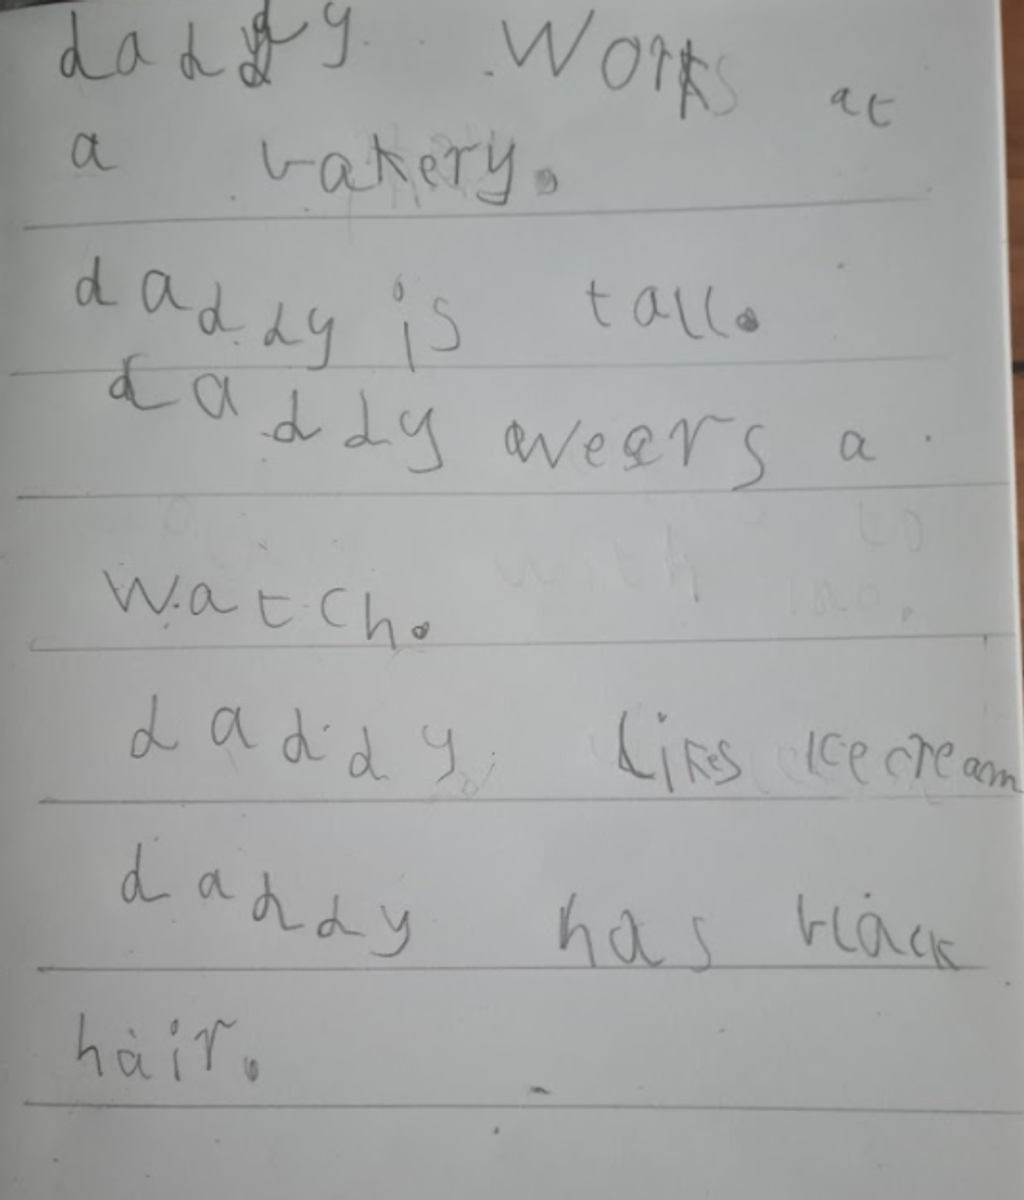 daddy works at
a bakery.
daddy is tall.
daddy wears a
watch.
daddy likes icecream
daddy has black
hair.